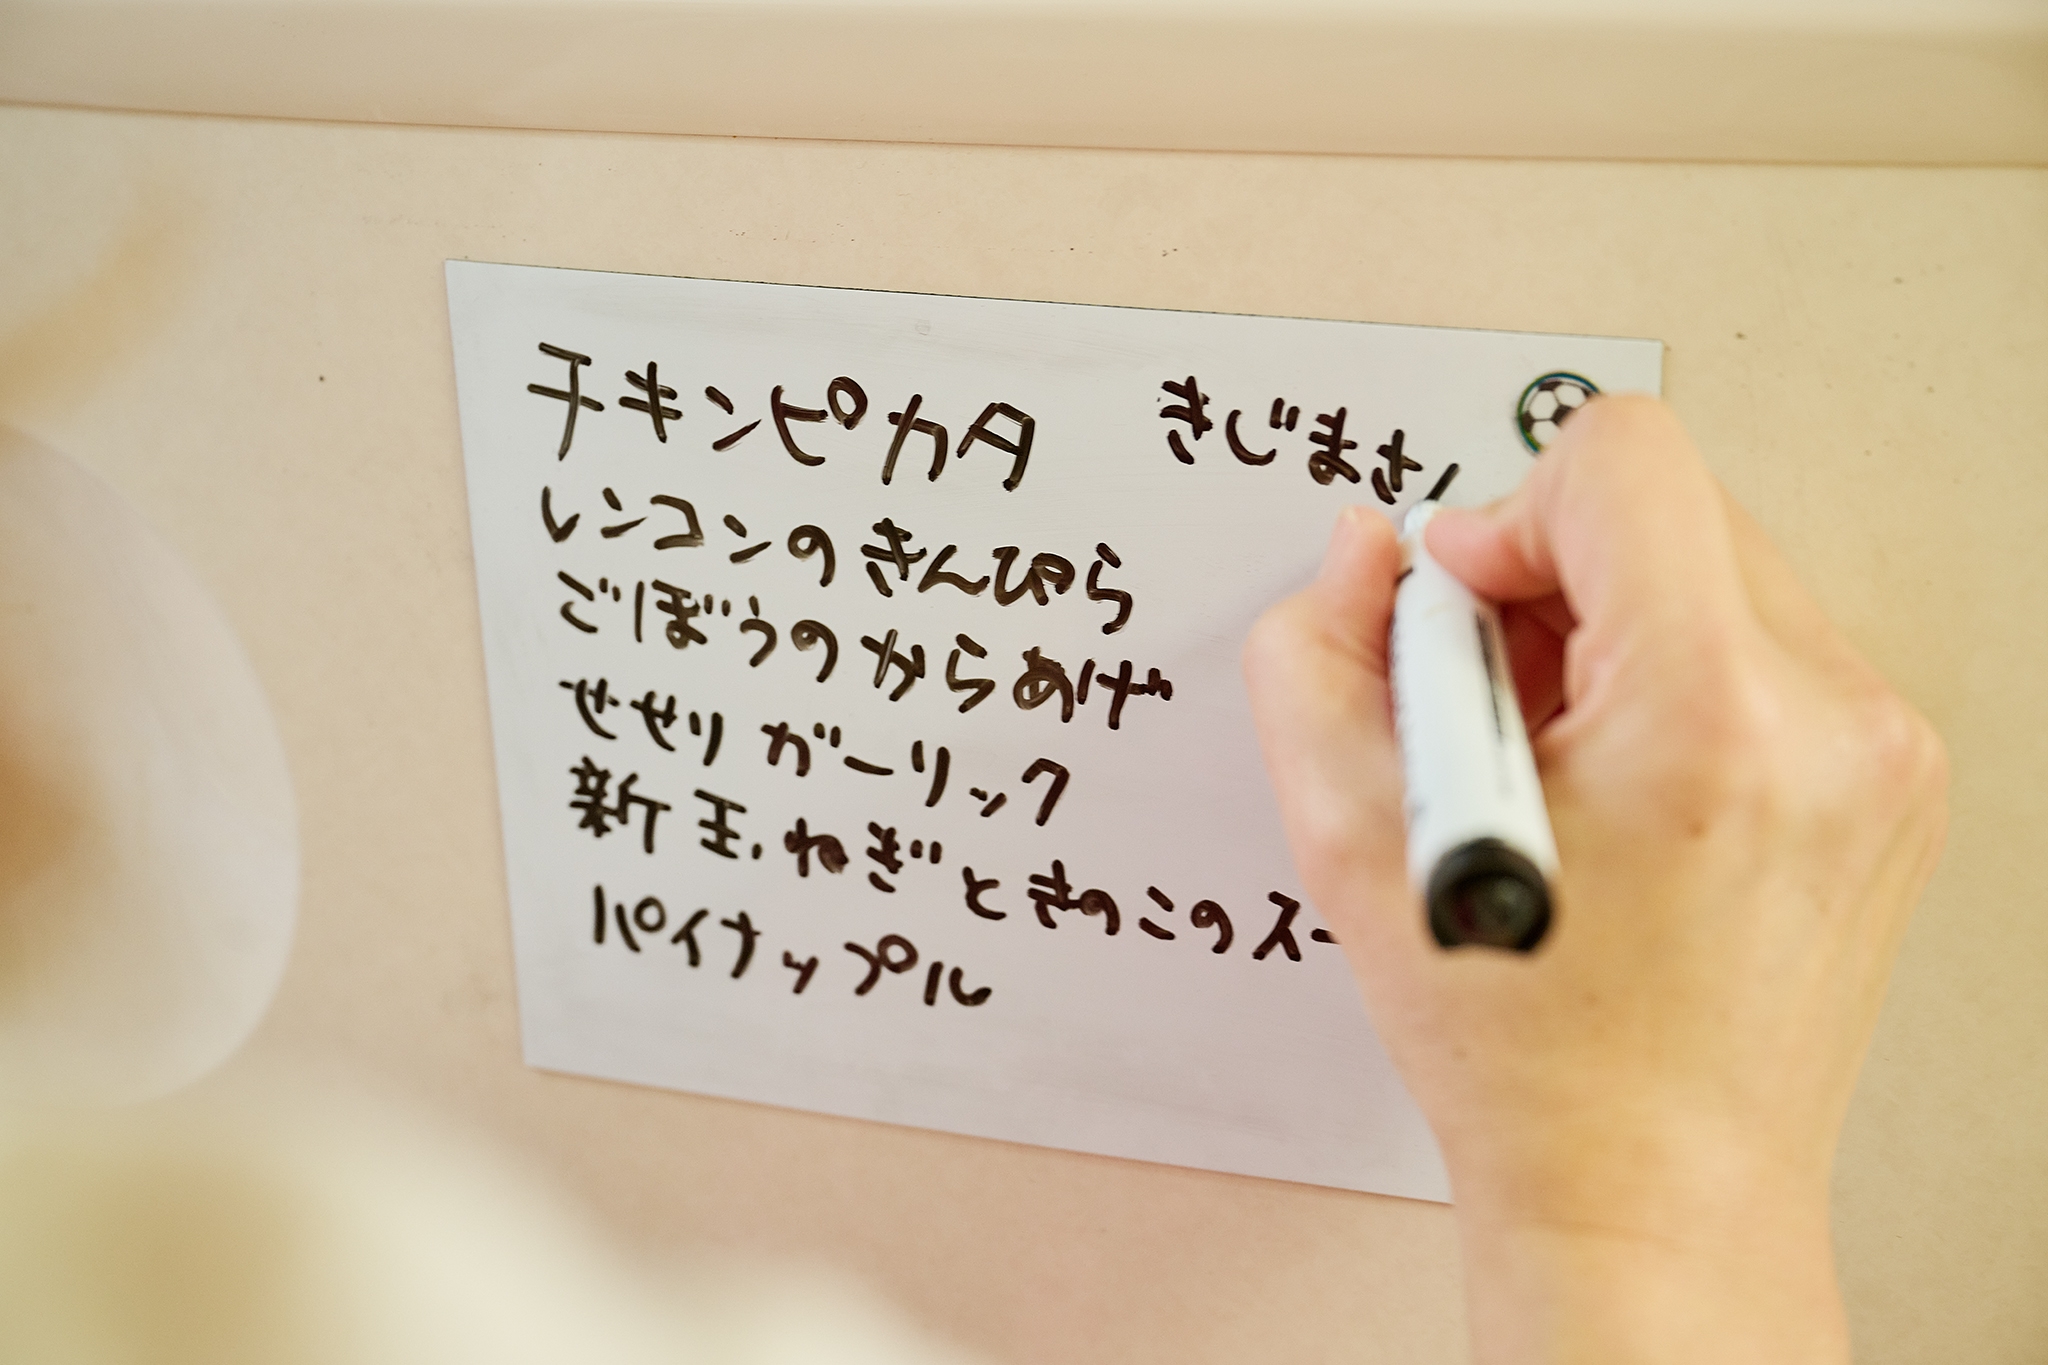 チキンピカタ きじまさ
レンコンのきんぴら
ごぼうのからあげ
せせりガーリック
新玉ねぎときのこのスー
パイナップル